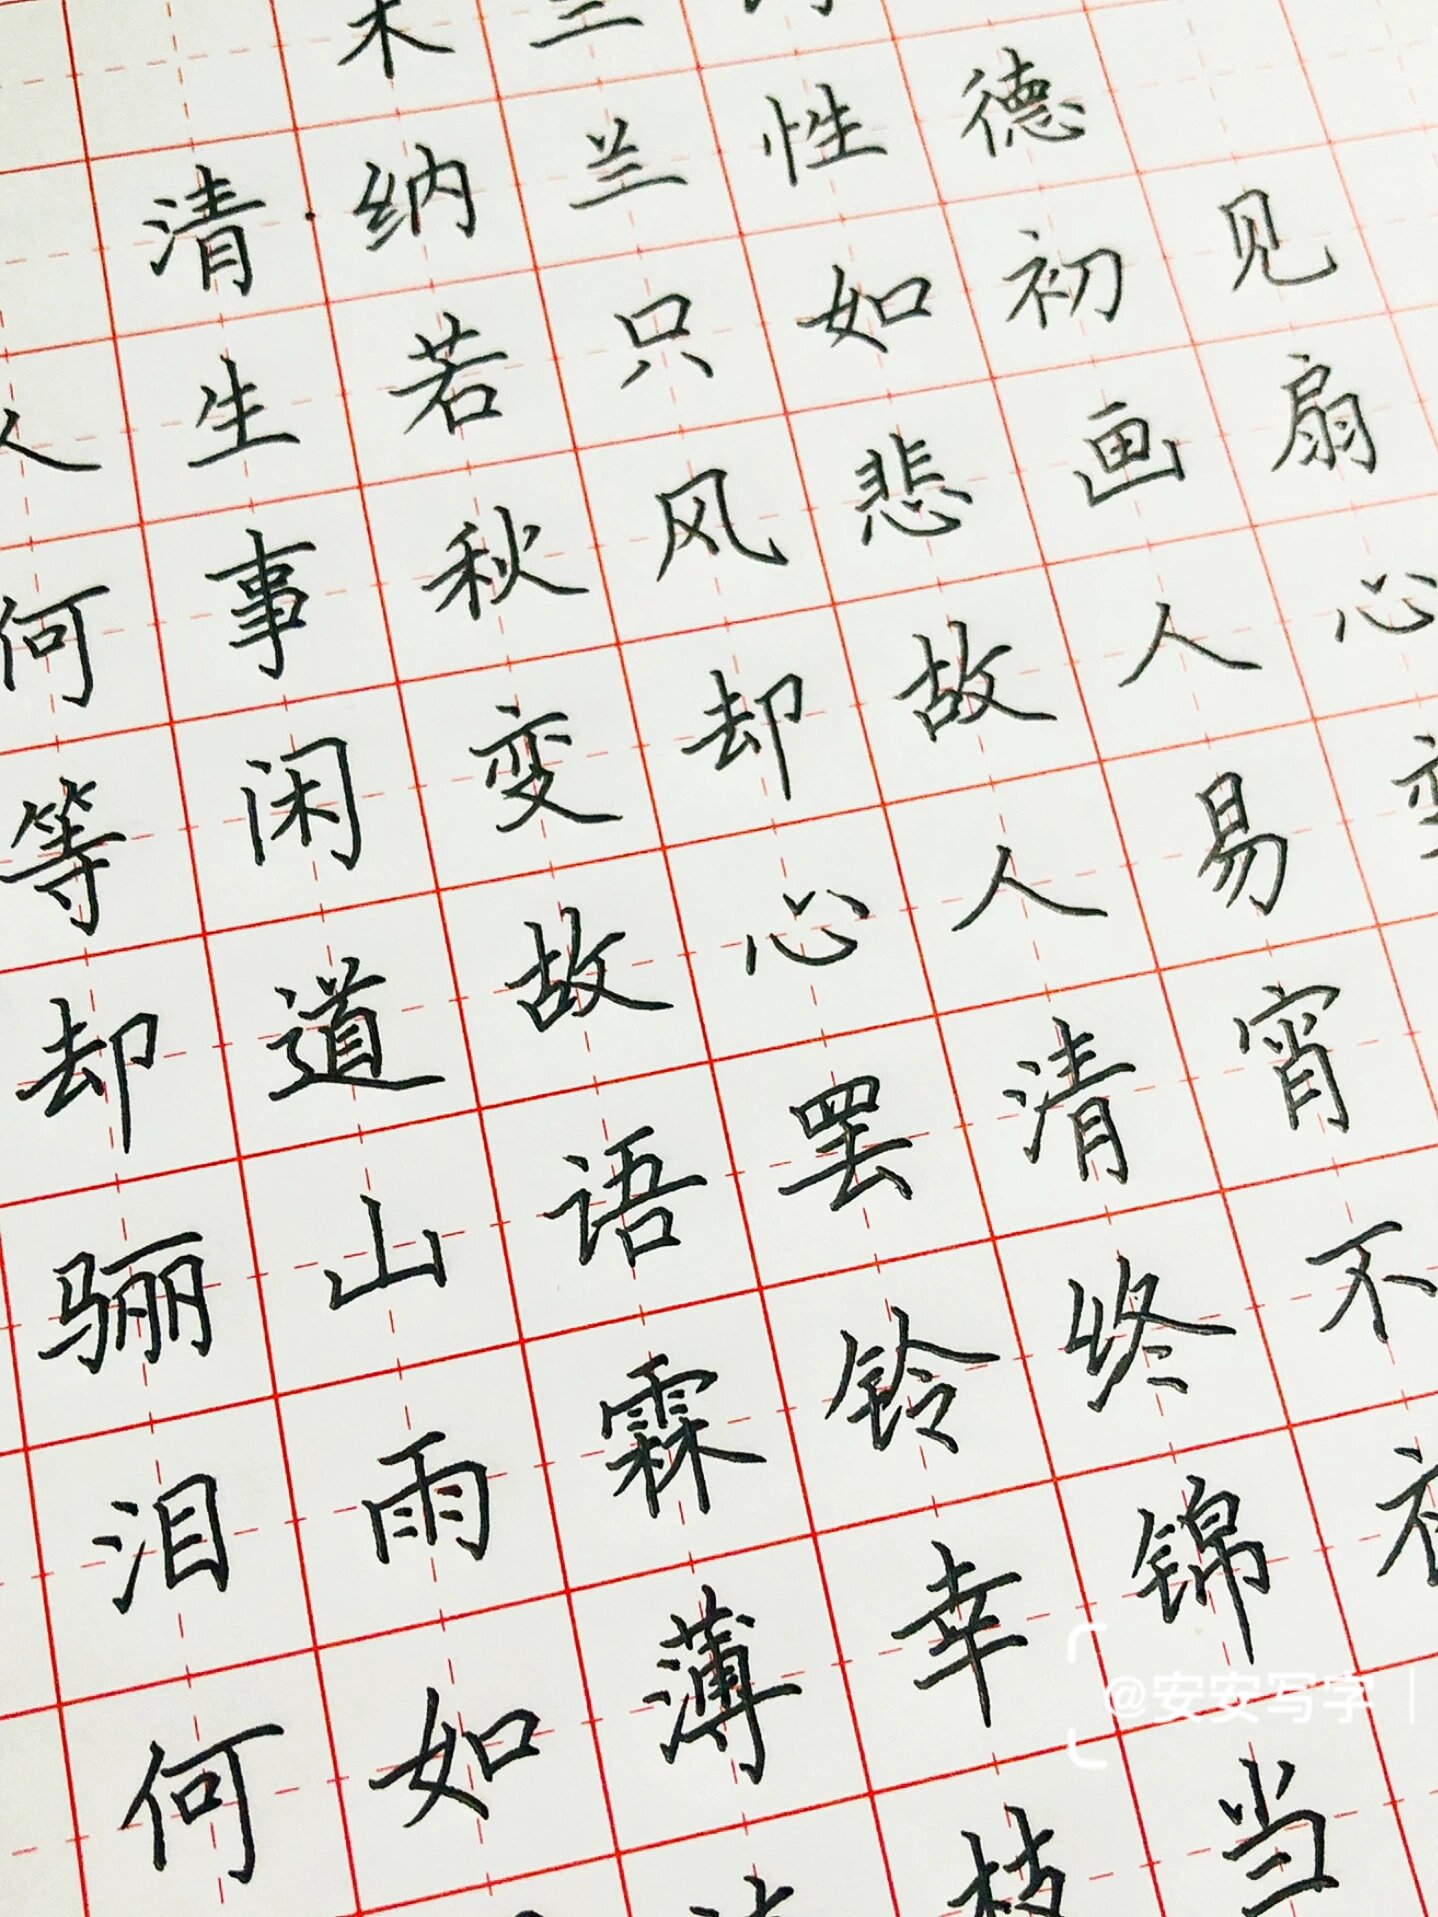 木兰
清·纳兰性德
人生若只如初见
何事秋风悲画扇
等闲变却故人心
却道故心人易变
骊山语罢清宵
泪雨霖铃终不
何如薄幸锦衣
枝当
@安安写字